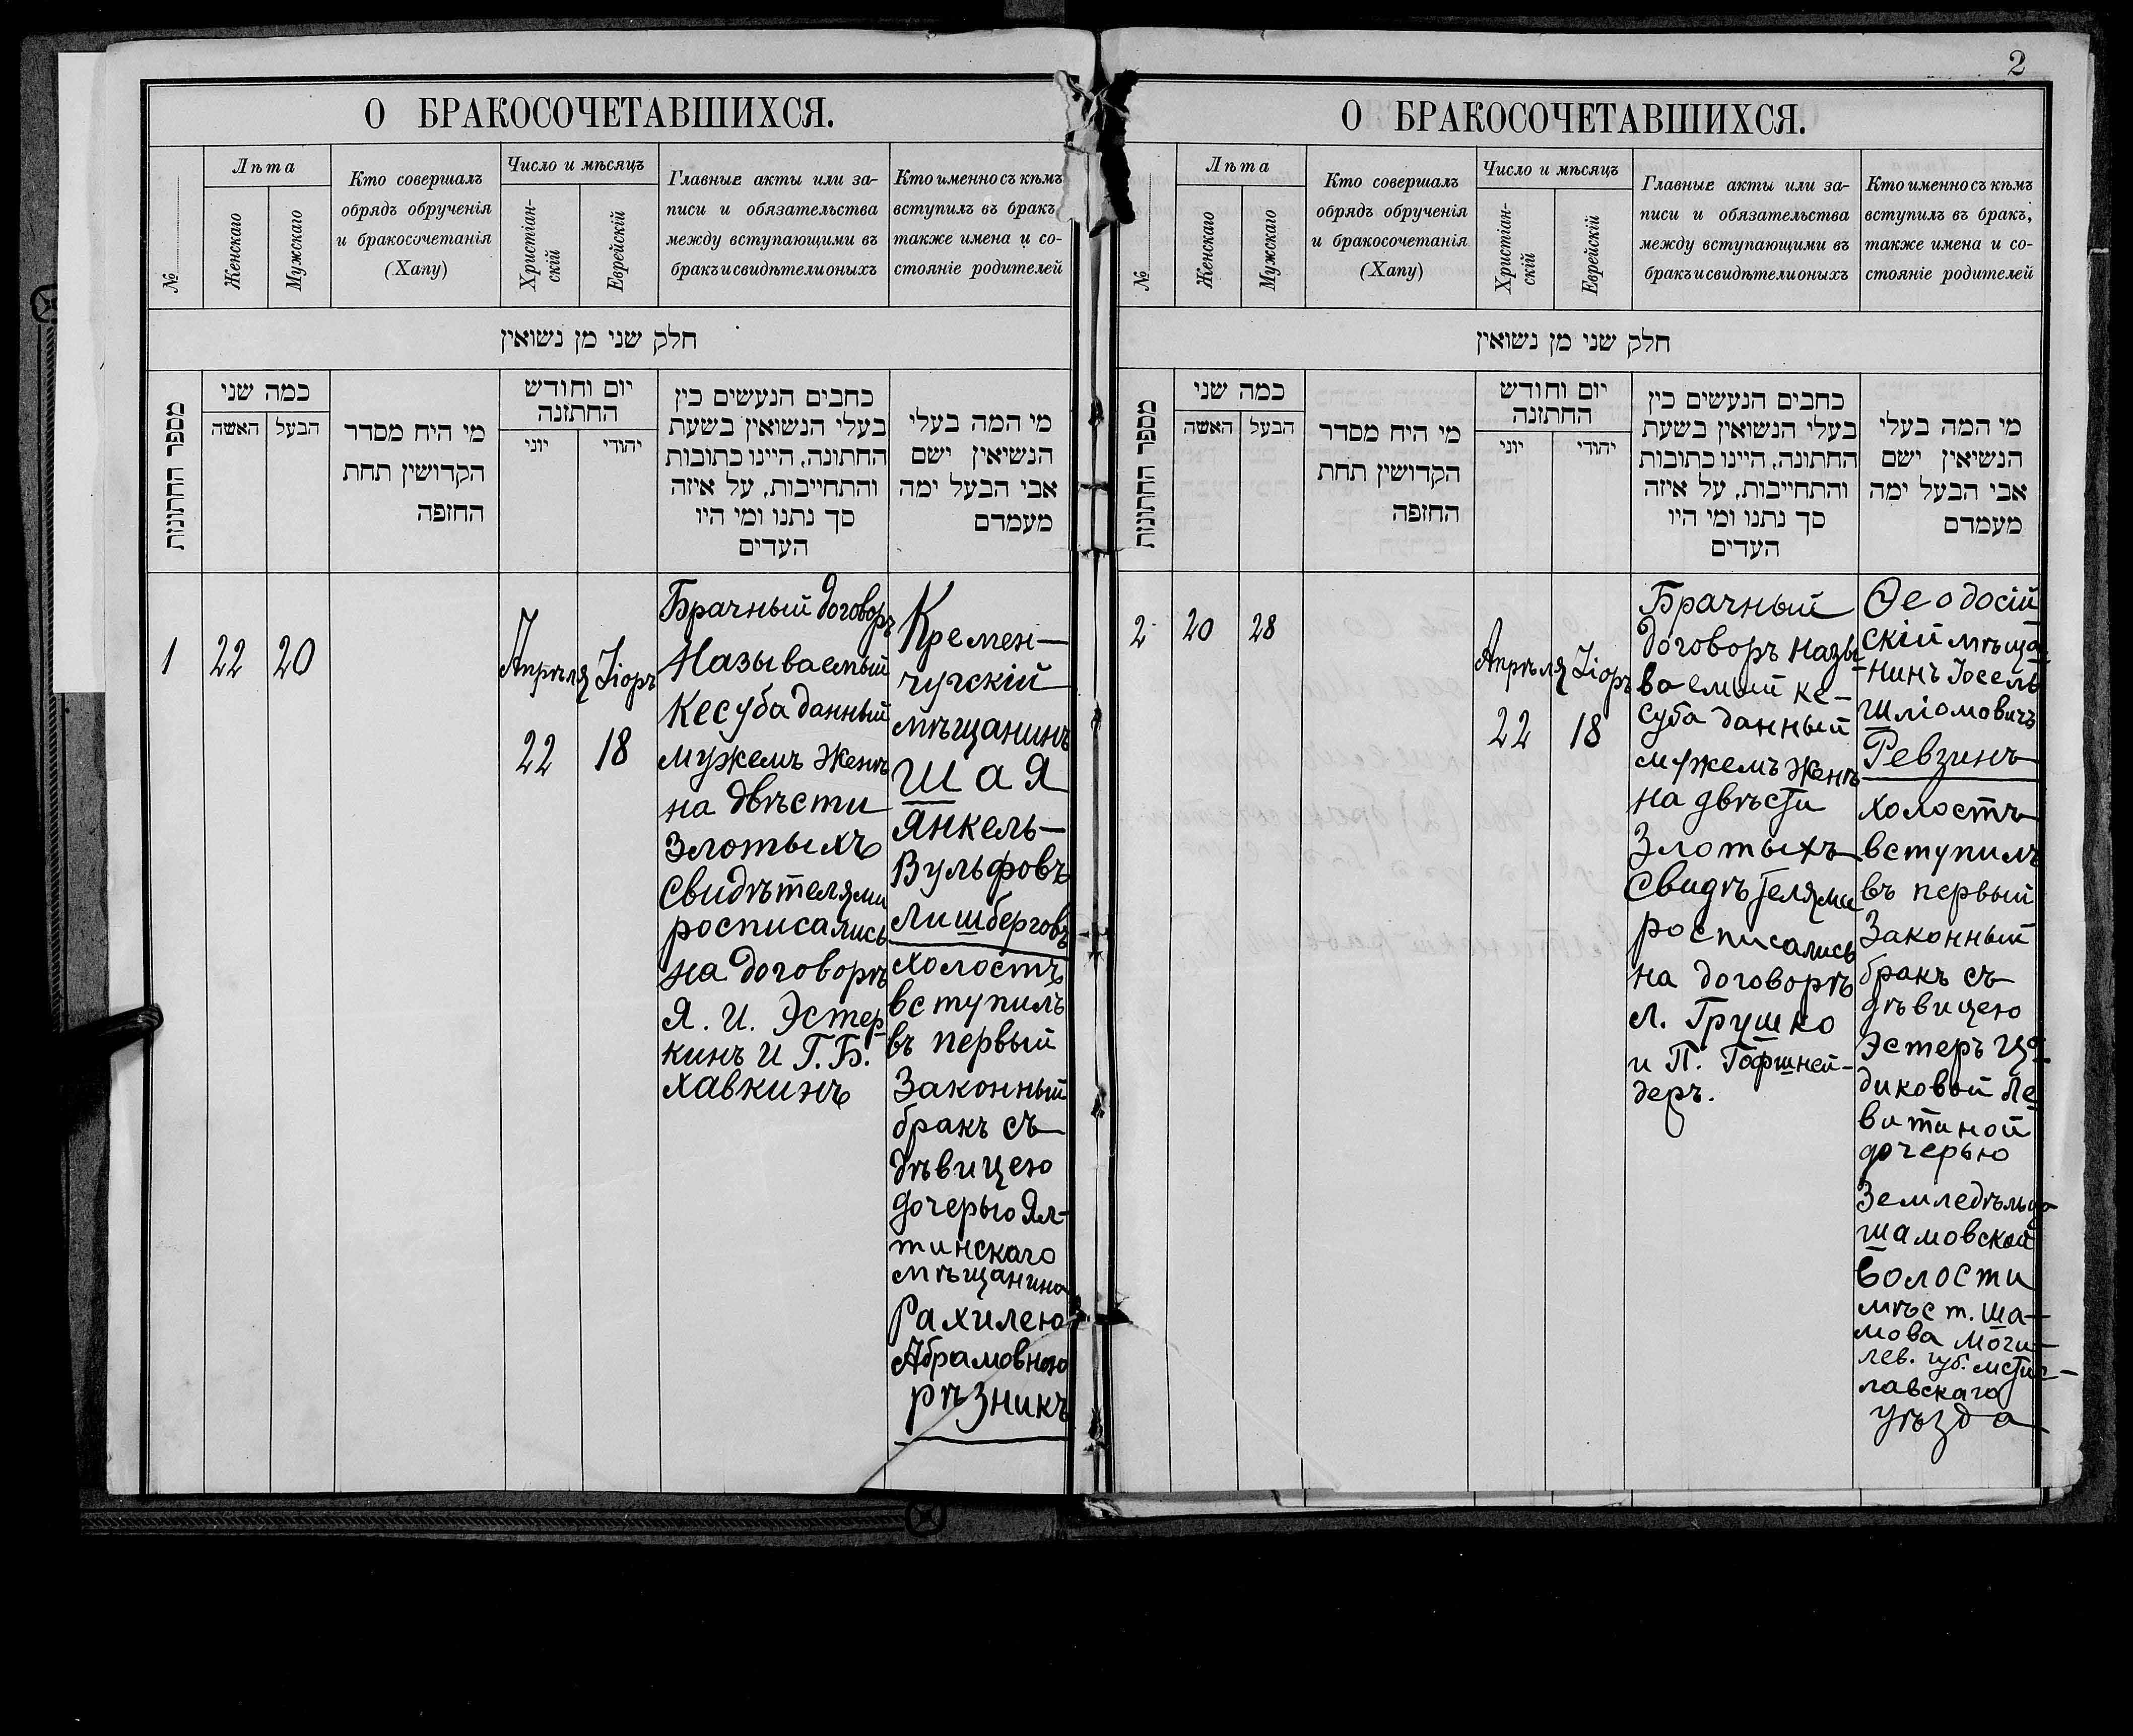 О БРАКОСОЧЕТАВШИХСЯ.
№
Лѣта
Женскаго
Мужскаго
Кто совершалъ
обрядъ обрученія
и бракосочетанія
(Хапу)
Число и мѣсяцъ
Христіан-
скій
Еврейскій
Главные акты или за-
писи и обязательства
между вступающими въ
бракъ и свидѣтели оныхъ
Кто именно съ кѣмъ
вступилъ въ бракъ,
также имена и со-
стояніе родителей
חלק שני מן נשואין
מספר החתונות
כמה שני
האשה
הבעל
מי היח מסדר
הקדושין תחת
החזפה
יום וחודש
החתזנה
יוני
יהודי
כחבים הנעשים כין
בעלי הנשואין בשעת
החתונה, היינו כתובות
והתחייבות, על איזה
סך נתנו ומי היו
העדים
מי המה בעלי
הנשיאין ישם
אבי הבעל ימה
מעמדם
1
22
20
Апрѣля
22
Іiоръ
18
Брачный договоръ
Называемый
Кесуба данный
мужемъ женѣ
на двѣсти
Злотыхъ
Свидѣтелями
росписались
на договорѣ
Я. И. Эстер-
кинъ и Г. Б.
Хавкинъ
Кремен-
чугскій
мѣщанинъ
Шая
Янкель-
Вульфовъ
Лишберговъ
холостъ
вступилъ
въ первый
Законный
бракъ съ
дѣвицею
дочерью Ял-
тинскаго
мѣщанина
Рахилею
Абрамовною
рѣзникъ
2
О БРАКОСОЧЕТАВШИХСЯ.
№
Лѣта
Женскаго
Мужскаго
Кто совершалъ
обрядъ обрученія
и бракосочетанія
(Хапу)
Число и мѣсяцъ
Христіан-
скій
Еврейскій
Главные акты или за-
писи и обязательства
между вступающими въ
бракъ и свидѣтели оныхъ
Кто именно съ кѣмъ
вступилъ въ бракъ,
также имена и со-
стояніе родителей
חלק שני מן נשואין
מספר החתונות
כמה שני
האשה
הבעל
מי היח מסדר
הקדושין תחת
החזפה
יום וחודש
החתזנה
יוני
יהודי
כחבים הנעשים כין
בעלי הנשואין בשעת
החתונה, היינו כתובות
והתחייבות, על איזה
סך נתנו ומי היו
העדים
מי המה בעלי
הנשיאין ישם
אבי הבעל ימה
מעמדם
2
20
28
Апрѣля
22
Іiоръ
18
Брачный
договоръ назы-
ваемый ке-
суба данный
мужемъ женѣ
на двѣсти
Злотыхъ
Свидѣтелями
росписались
на договорѣ
Л. Грушко
и П. Гофшней-
деръ.
Ѳеодосій
скій мѣща-
нинъ Іосель
Шліомовичъ
Ревзинъ
холостъ
вступилъ
въ первый
Законный
бракъ съ
дѣвицею
Эстеръ Ца-
диковой Ле-
витиной
дочерью
Земледѣльца
Шамовской
Волости
мѣст. Ша-
мова Моги-
лев. губ. Мстис-
лавскаго
уѣзда